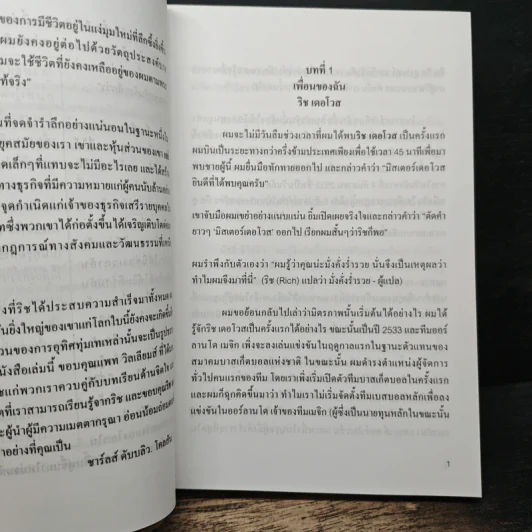 ของการมีชีวิตอยู่ในแง่มุมใหม่ที่ลึกซึ้งยิ่งขึ้น
ผมยังคงอยู่ต่อไปด้วยวัตถุประสงค์
จะใช้ชีวิตที่ยังคงเหลืออยู่ของผมตาม
จริง"
ที่จดจำรำลึกอย่างแน่นอนในฐานะหนึ่งใน
ยุคสมัยของเรา เขาและหุ้นส่วนของเขา
เล็กๆที่แทบจะไม่มีอะไรเลย และได้
ทางธุรกิจที่มีความหมายแก่ผู้คนนับล้าน
จุดกำเนิดแก่เจ้าของธุรกิจเสรีรายย่อย
ซึ่งพวกเขาได้ก่อตั้งขึ้นได้เจริญเติบโต
ปรากฏการณ์ทางสังคมและวัฒนธรรม
ที่ริชได้ประสบความสำเร็จมาทั้งหมด
ยิ่งใหญ่ของเขาแก่โลกใบนี้ยังคงจะเกิดขึ้น
ของการอุทิศทุ่มเทเหล่านั้นจะเป็น
หนังสือเล่มนี้ ขอบคุณแพท วิลเลียมส์ ที่ได้
แก่พวกเราควบคู่กับบทเรียนด้านจิตใจ
ที่เราสามารถเรียนรู้จากริช และขอบคุณริช
ผู้นำผู้มีความเมตตากรุณา อ่อนน้อม
อย่างที่คุณเป็น
ชาร์ลส์ ดับบลิว. โคลสัน
บทที่ 1
เพื่อนของฉัน
ริช เดอโวส
ผมจะไม่มีวันลืมช่วงเวลาที่ผมได้พบริช เดอโวส เป็นครั้งแรก
ผมบินเป็นระยะทางกว่าครึ่งข้ามประเทศเพียงเพื่อใช้เวลา 45 นาทีเพื่อมา
พบชายผู้นี้ ผมยื่นมือทักทายออกไป และกล่าวคำว่า "มิสเตอร์เดอโวส
ยินดีที่ได้พบคุณครับ"
เขาจับมือผมเขย่าอย่างแนบแน่น ยิ้มเปิดเผยจริงใจและกล่าวคำว่า "ตัดคำ
ยาวๆ 'มิสเตอร์เดอโวส' ออกไป เรียกผมสั้นๆว่าริชก็พอ"
ผมรำพึงกับตัวเองว่า "ผมรู้ว่าคุณน่ะมั่งคั่งร่ำรวย นั่นจึงเป็นเหตุผลว่า
ทำไมผมจึงมาที่นี่" (ริช (Rich) แปลว่า มั่งคั่งร่ำรวย - ผู้แปล)
ผมขอย้อนกลับไปเล่าว่ามิตรภาพนั้นเริ่มต้นได้อย่างไร ผมได้
รู้จักริช เดอโวสเป็นครั้งแรกได้อย่างไร ขณะนั้นเป็นปี 2533 และทีมออร์
ลานโด เมจิก เพิ่งจะลงเล่นแข่งขันในฤดูกาลแรกในฐานะตัวแทนของ
สมาคมบาสเก็ตบอลแห่งชาติ ในขณะนั้น ผมดำรงตำแหน่งผู้จัดการ
ทั่วไปคนแรกของทีม โดยเราเพิ่งเริ่มเปิดตัวทีมบาสเก็ตบอลในครั้งแรก
และผมก็ฉุกคิดขึ้นมาว่า ทำไมเราไม่เริ่มจัดตั้งทีมเบสบอลหลักเพื่อลง
แข่งขันในออร์ลานโด เจ้าของทีมเมจิก (ผู้ซึ่งเป็นนายทุนหลักในขณะนั้น
1